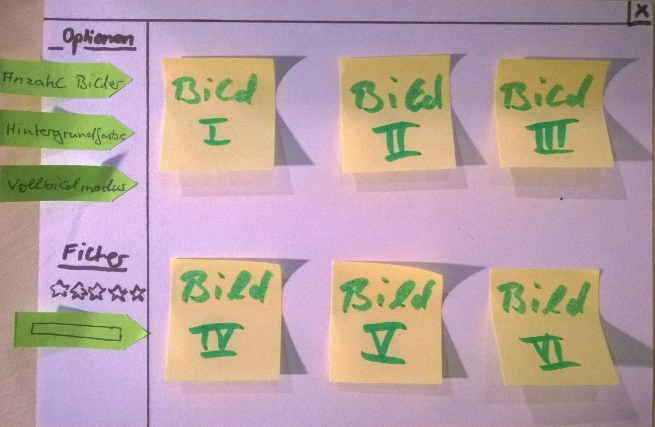 Optionen
Anzahl Bilder
Hintergrundfarbe
Vollbildmodus
Filter
X
Bild
I
Bild
II
Bild
III
Bild
IV
Bild
V
Bild
VI